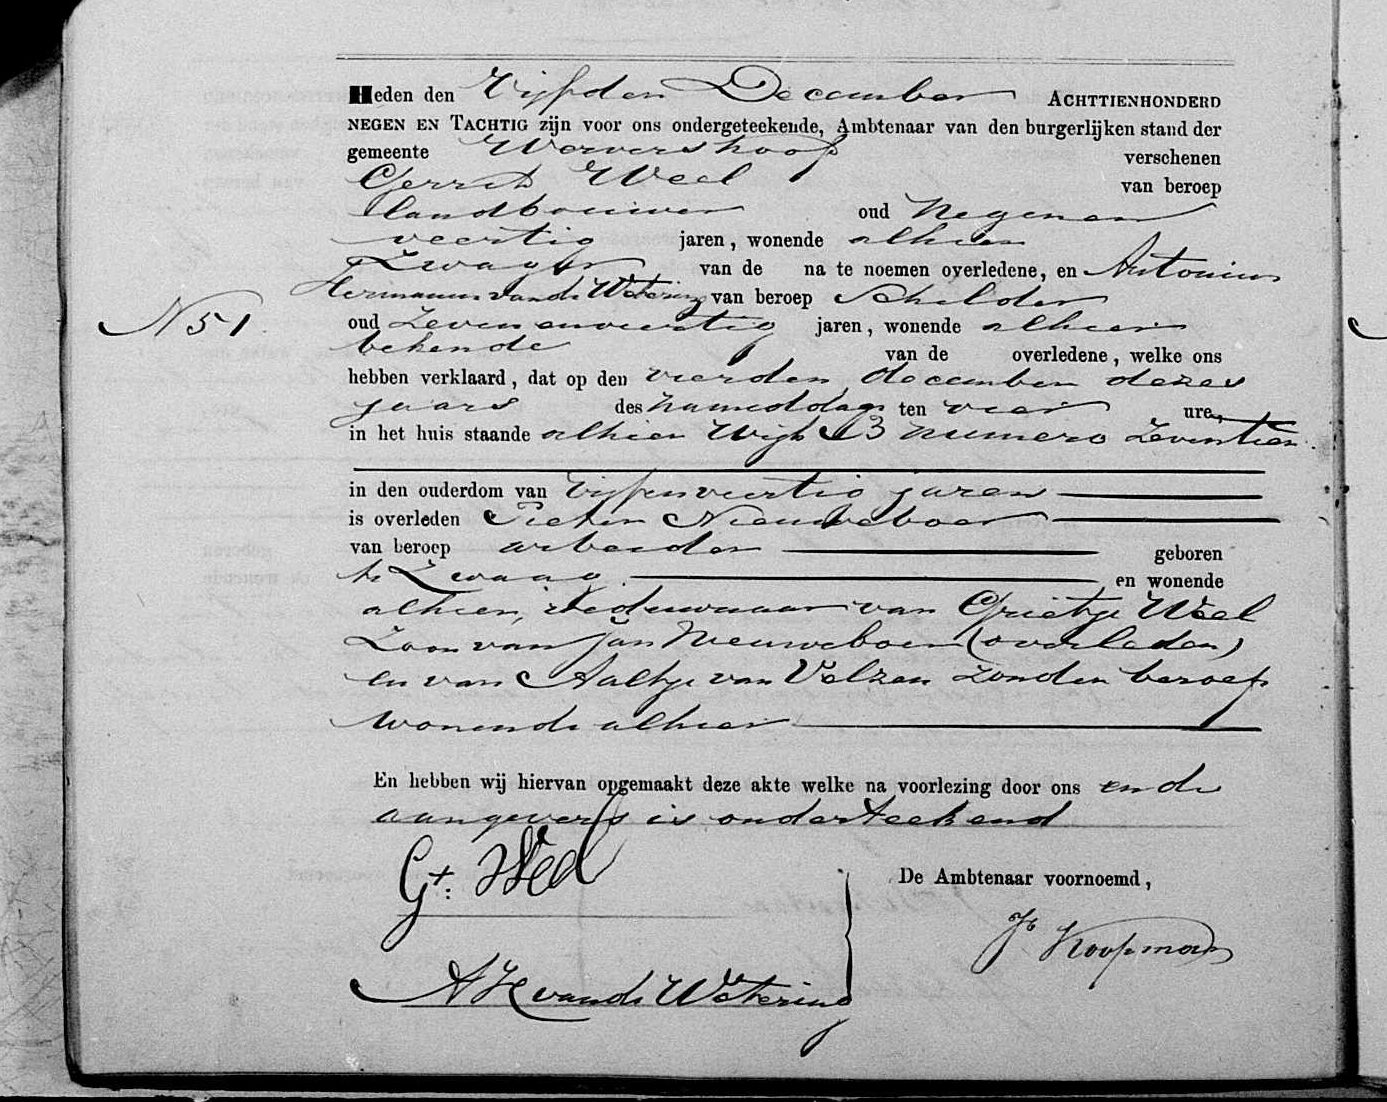 Heden den Vijfden December ACHTTIENHONDERD
NEGEN EN TACHTIG zijn voor ons ondergeteekende, Ambtenaar van den burgerlijken stand der
gemeente Wervershoof verschenen
Gerrit Weel van beroep
landbouwer oud negenen
veertig jaren, wonende alhier
Zwager van de na te noemen overledene, en Antonius
Hermanus van de Wetering van beroep Schilder
N 51
oud Zevenenveertig jaren, wonende alhier
bekende van de overledene, welke ons
hebben verklaard, dat op den vierden december dezes
jaars des namiddags ten vier ure,
in het huis staande alhier Wijk B numero Zeventien
in den ouderdom van Vijfenveertig jaren
is overleden Pieter Nieuweboer
van beroep arbeider geboren
te Zwaag en wonende
alhier, Weduwnaar van Grietje Weel
Zoon van Jan Nieuweboer (overleden)
en van Aaltje van Velzen zonder beroep
wonende alhier
En hebben wij hiervan opgemaakt deze akte welke na voorlezing door ons en de
aangevers is onderteekend
Gt. Weel
De Ambtenaar voornoemd,
Koopman
A H van de Wetering